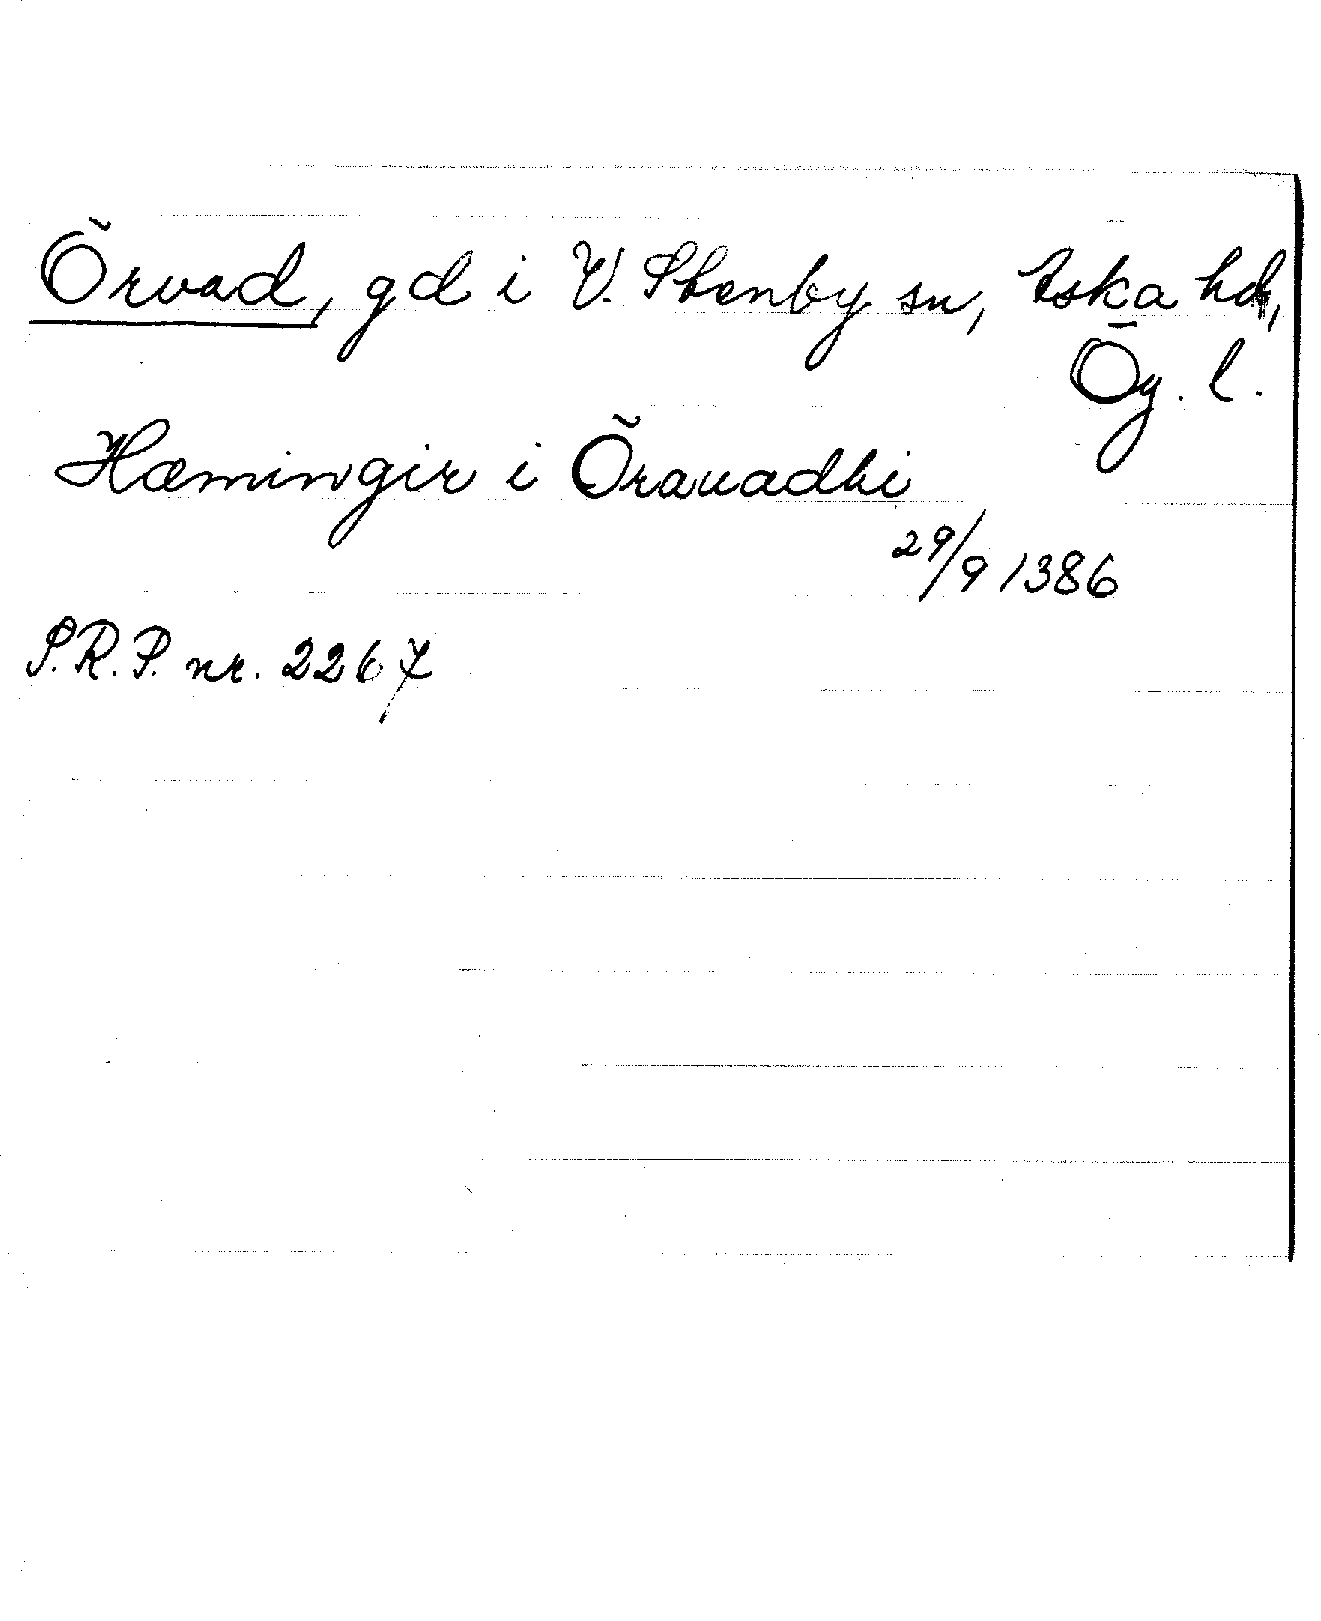 Örvad, gd i V. Stenby sn, Aska hd,
Ög. l.
Hæmingir i Örauadhi
29/9 1386
S.R.P. nr. 2267